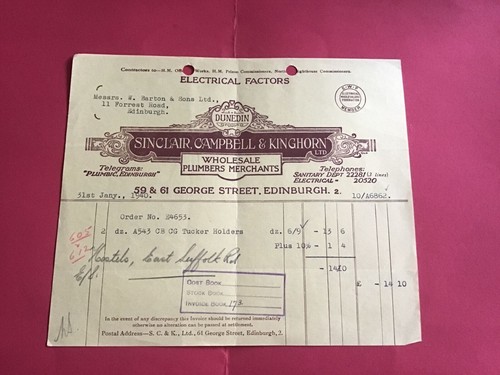 Contractors to—H.M. Office Works, H.M. Prison Commissioners, Lighthouse Commissioners.
ELECTRICAL FACTORS
Messrs. W. Barton & Sons Ltd.,
11 Forrest Road,
Edinburgh.
E.W.F.
MEMBER
DUNEDIN
SINCLAIR, CAMPBELL & KINGHORN LTD
WHOLESALE
PLUMBERS MERCHANTS
Telegrams:
"PLUMBIC, EDINBURGH"
Telephones:
SANITARY DEPT 22281 (3 lines)
ELECTRICAL - 20520
59 & 61 GEORGE STREET, EDINBURGH. 2.
31st Jany., 1940.
10/A6862.
Order No. E4653.
2 dz. A543 CH CG Tucker Holders dz. 6/9 - 13 6
Plus 10% - 1 4
- 14 10
£ - 14 10
Hostels, East Suffolk Rd
E/L.
COST BOOK
STOCK BOOK
INVOICE BOOK 173
In the event of any discrepancy this Invoice should be returned immediately
otherwise no alteration can be passed at settlement.
Postal Address—S. C. & K., Ltd., 61 George Street, Edinburgh, 2.